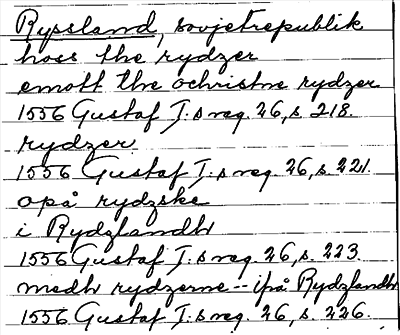 Ryssland, sovjetrepublik
hoss the rydzer
emott the ochristne rydzer
1556 Gustaf I:s reg. 26, s. 218.
rydzer
1556 Gustaf I:s reg. 26, s. 221.
opå rydzske
i Rydzlandh
1556 Gustaf I:s reg. 26, s. 223
medh rydzerne -- ipå Rydzlandh
1556 Gustaf I:s reg. 26, s. 226.